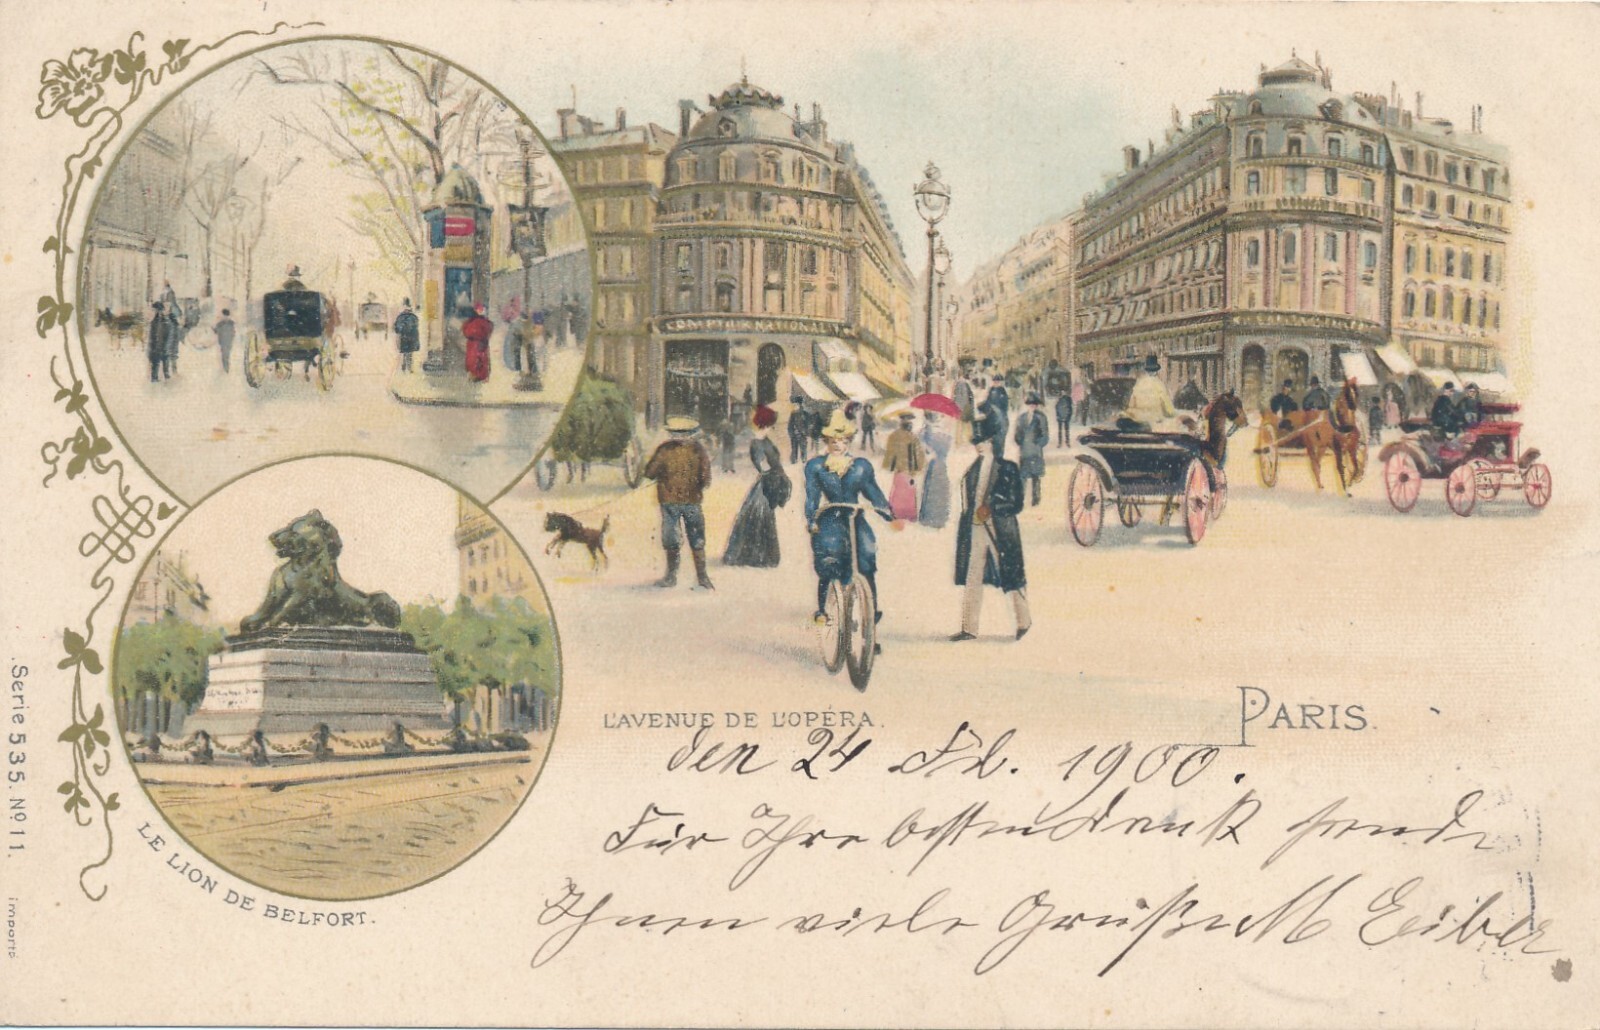 COMPTOIR NATIONAL
L'AVENUE DE L'OPÉRA.
PARIS.
den 24 Feb. 1900.
Für Ihre besten dank sende
Ihnen viele Grüße M Eiber
LE LION DE BELFORT.
Serie 535. Nº 11.
importé